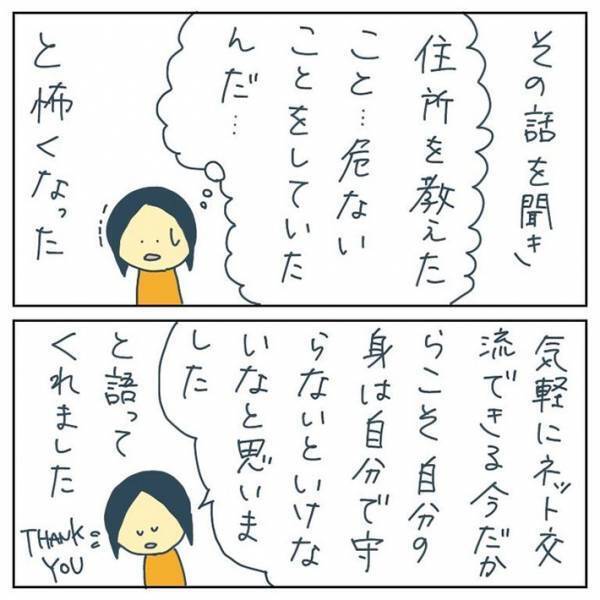 その話を聞き
住所を教えた
こと…危ない
ことをしていた
んだ…
と怖くなった
気軽にネット交
流できる今だか
らこそ自分の
身は自分で守
らないといけな
いなと思いま
した
と語って
くれました
THANK
YOU